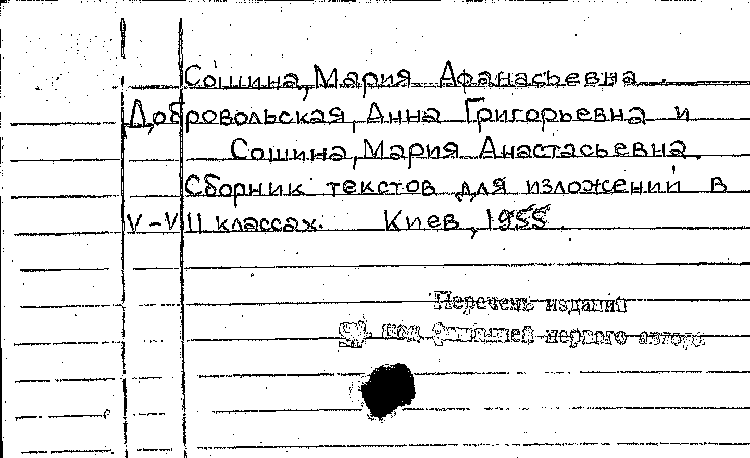 Сошина, Мария Афанасьевна.
Добровольская, Анна Григорьевна и
Сошина, Мария Анастасьевна.
Сборник текстов для изложений в
V-VII классах. Киев, 1955.
Перечень изданий
см. под фамилией первого автора